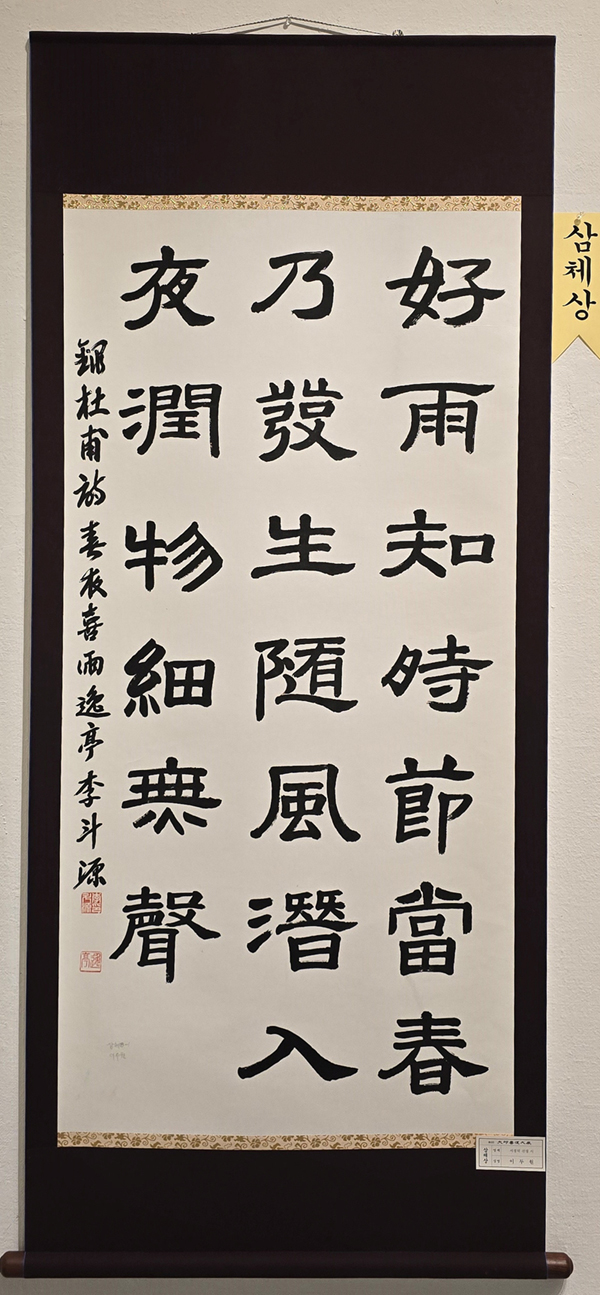 好雨知時節當春
乃發生随風潛入
夜潤物細無聲
錄杜甫詩春夜喜雨逸亭李斗源
삼체상
삼체상
이두원